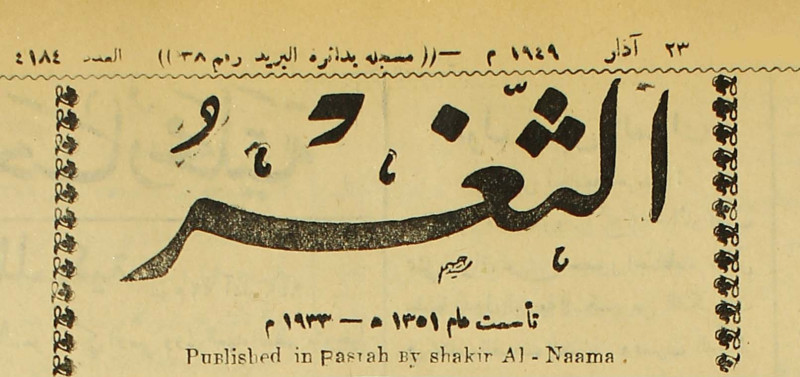 ٢٣ آذار ١٩٤٩ م — ((مسجله بدائرة البريد رقم ٣٨)) العدد ٤١٨٤
الثغر
تأسست عام ١٣٥١ ه — ١٩٣٣ م
Published in Basrah By shakir Al - Naama .